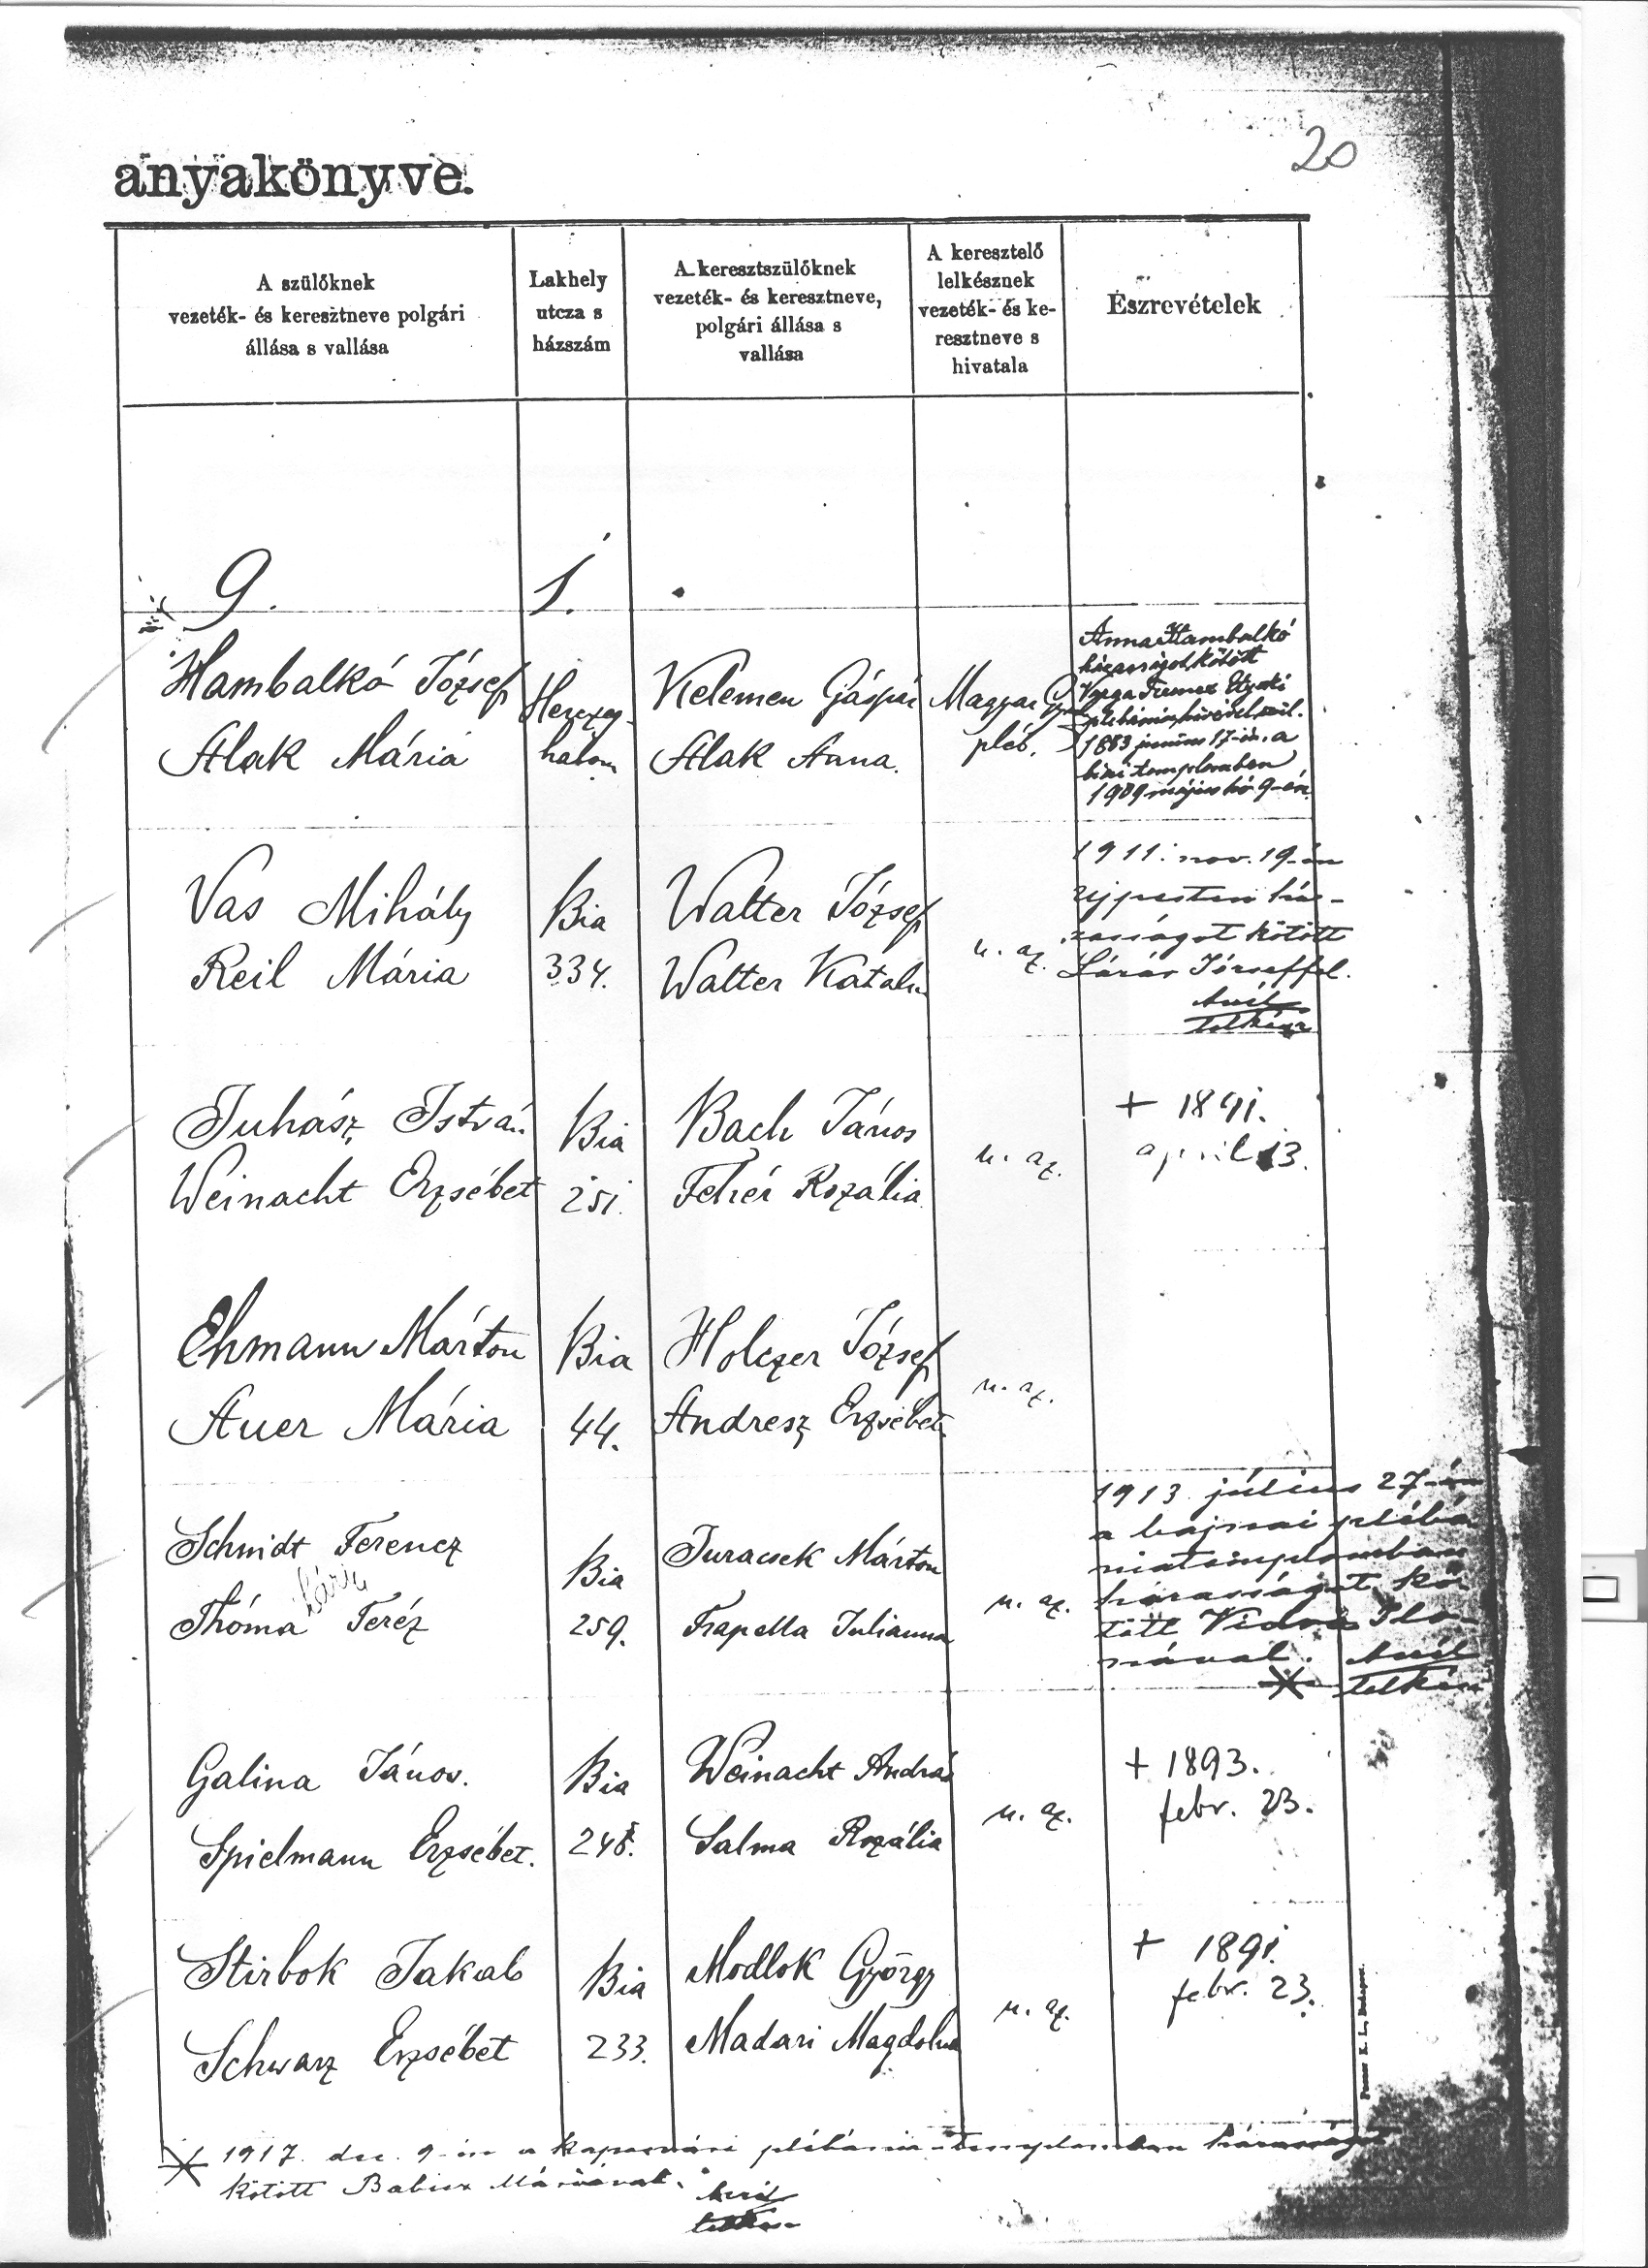 20
anyakönyve.
A szülőknek
vezeték- és keresztneve polgári
állása s vallása
Lakhely
utcza s
házszám
A keresztszülőknek
vezeték- és keresztneve,
polgári állása s
vallása
A keresztelő
lelkésznek
vezeték- és ke-
resztneve s
hivatala
Észrevételek
9. 1.
Hambalkó József
Alak Mária
Herczeg-
halom
Kelemen Gáspár
Alak Anna.
Magyar
pléb.
Anna Hambalkó
házasságot kötött
Varga
1883 junius 17-én a
biai templomban
1909 május hó 9-én
Vas Mihály
Reil Mária
Bia
334.
Walter József
Walter Katalin
u. az.
1911. nov. 19-én
Ujpesten há-
zasságot kötött
Józseffel.
Juhász István
Weinacht Erzsébet
Bia
251.
Bach János
Fehér Rozália
u. az.
+ 1891.
april 13.
Ehmann Márton
Auer Mária
Bia
44.
Holczer József
Andresz Erzsébet
u. az.
Schmidt Ferencz
Thóma Teréz
Bia
259.
Juracsek Márton
Trapella Julianna
u. az.
1913. július 27-én
a bajnai plébá
niatemplomban
házasságot kö
tött Ilo-
nával.
Galina János.
Spielmann Erzsébet.
Bia
248.
Weinacht András
Salma Rozália
u. az.
+ 1893.
febr. 23.
Stirbok Jakab
Schwarz Erzsébet
Bia
233.
Modlok György
Madari Magdolna
u. az.
+ 1891.
febr. 23.
1917. dec. 9-én a kaposvári plébánia-templomban házasságot
kötött Babicz Máriával.